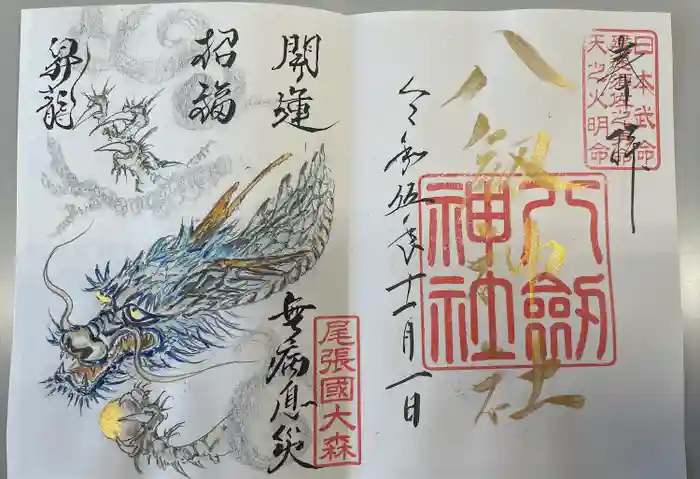 奉拝
日本武命
天之火明命
八剱神社
八劍神社
令和伍年十一月一日
開運
招福
昇龍
無病息災
尾張國大森